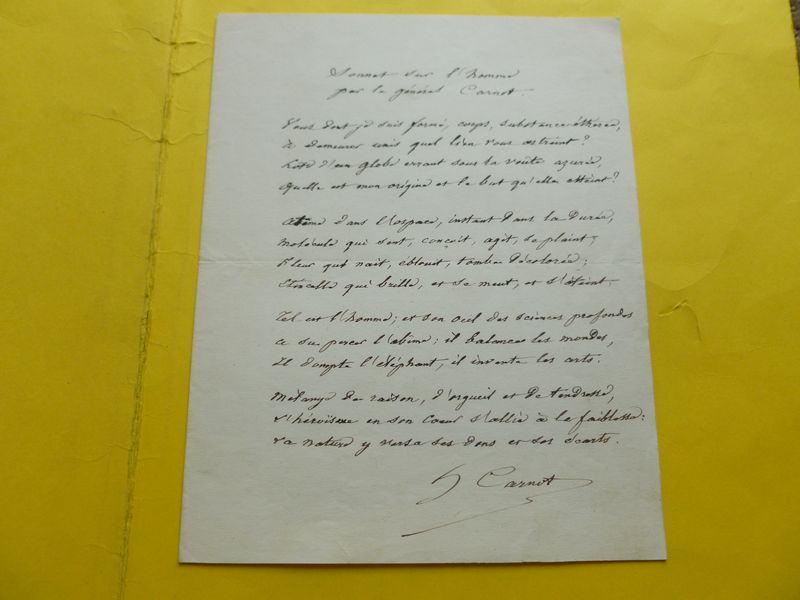 Sonnet sur l'homme
par le général Carnot.
Vous dont je suis formé, corps, substance éthérée,
à demeurer unis quel lien vous astreint?
Hôte d'un globe errant sous la voûte azurée,
quelle est mon origine et le but qu'elle atteint?
Atôme dans l'espace, instant dans la durée,
Molécule qui sent, conçoit, agit, se plaint,
Fleur qui nait, éblouit, tombe décolorée;
Etincelle qui brille, et se meut, et s'éteint,
Tel est l'homme; et son oeil des sciences profondes
a su percer l'abime; il balance les mondes,
Il dompte l'éléphant, il invente les arts.
Mélange de raison, d'orgueil et de tendresse,
L'héroïsme en son coeur s'allie à la faiblesse:
La nature y versa ses dons et ses écarts.
H Carnot